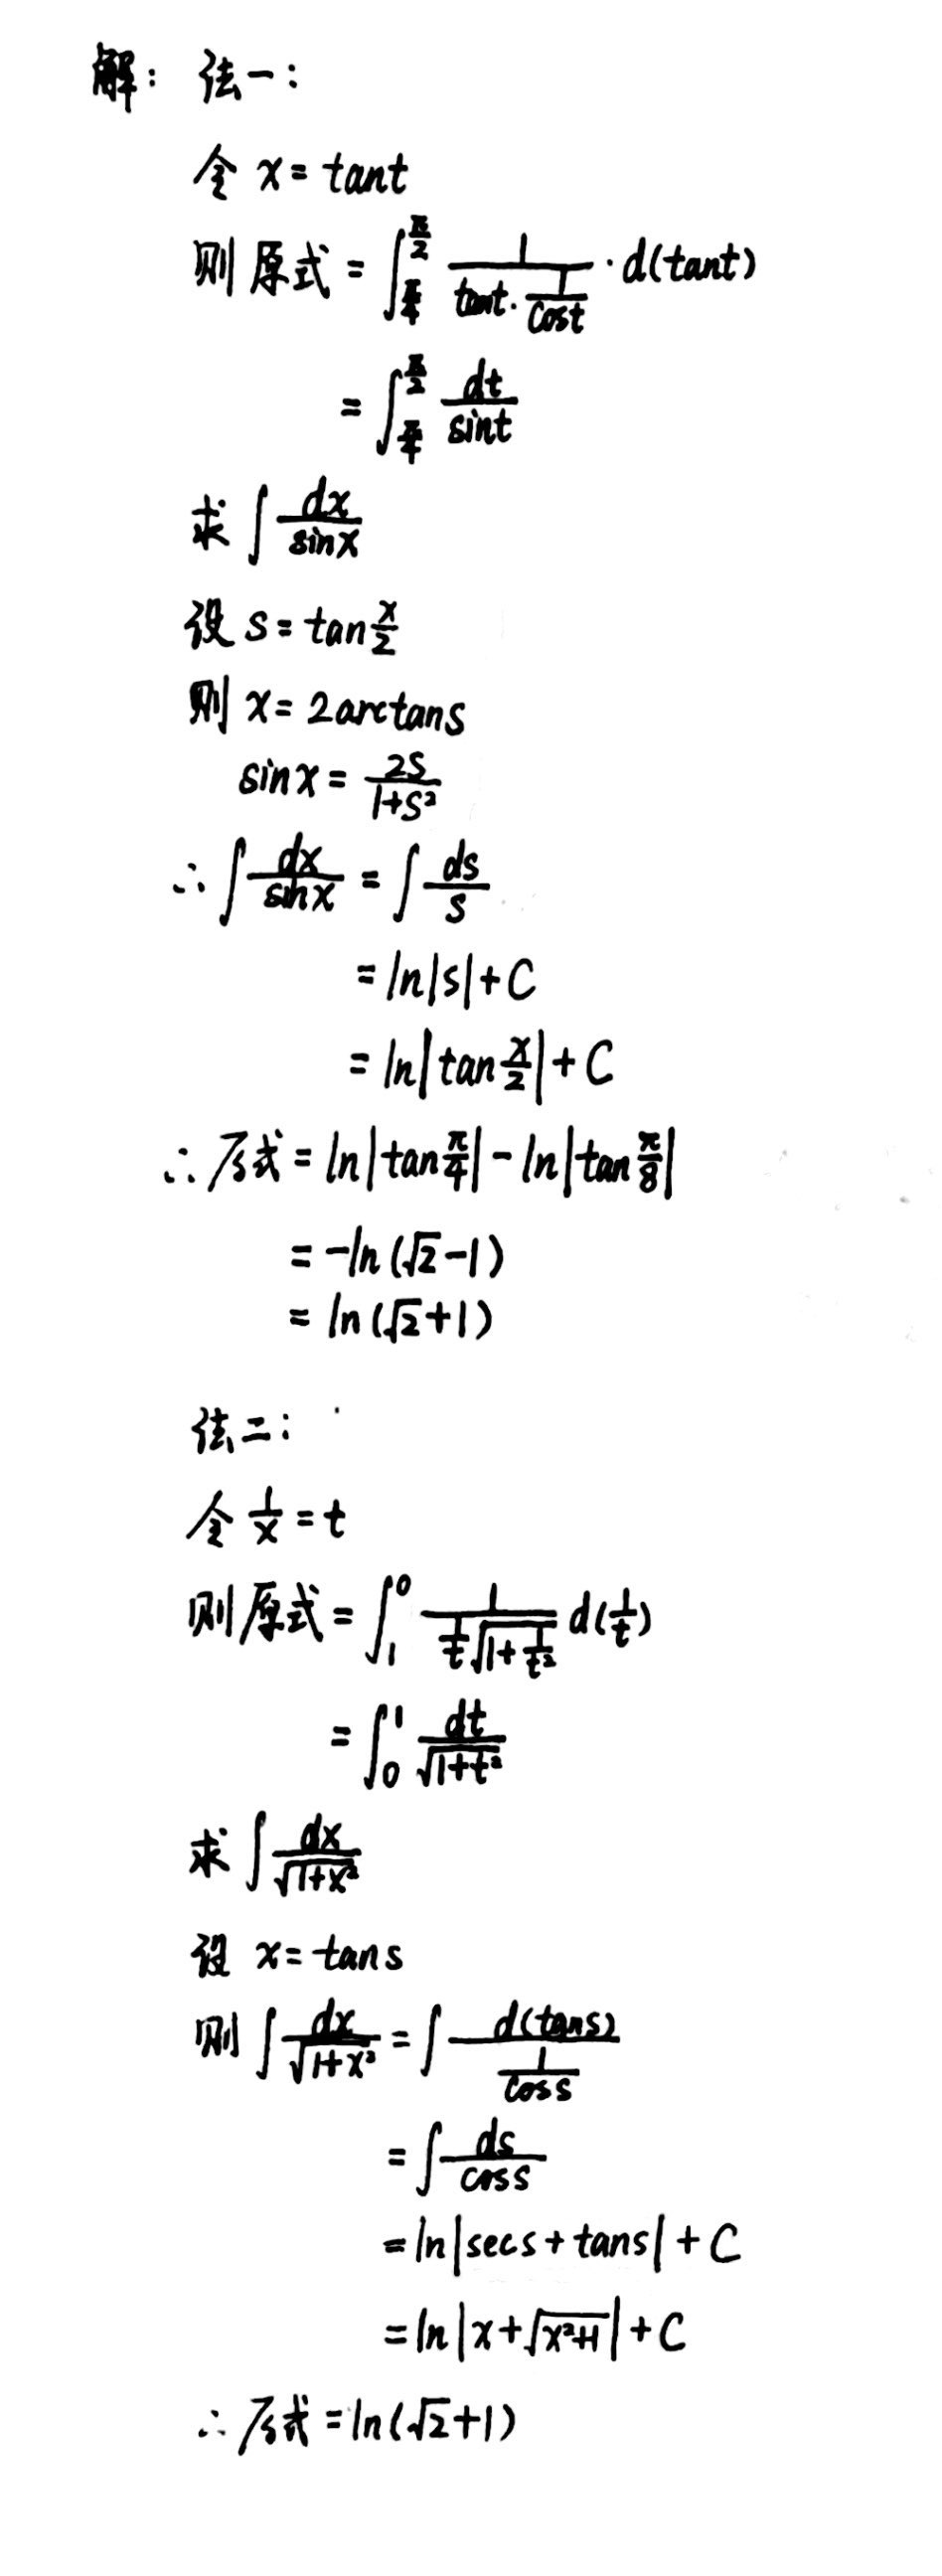 解: 法一:
令 x = tant
则 原式 = ∫_{π/4}^{π/2} 1/(tant · 1/cost) · d(tant)
= ∫_{π/4}^{π/2} dt/sint
求 ∫ dx/sinx
设 s = tan x/2
则 x = 2arctans
sinx = 2s/(1+s²)
∴ ∫ dx/sinx = ∫ ds/s
= ln|s| + C
= ln|tan x/2| + C
∴ 原式 = ln|tan π/4| - ln|tan π/8|
= -ln(√2-1)
= ln(√2+1)
法二:
令 1/x = t
则 原式 = ∫_1^0 1/((1/t)√(1+1/t²)) d(1/t)
= ∫_0^1 dt/√(1+t²)
求 ∫ dx/√(1+x²)
设 x = tans
则 ∫ dx/√(1+x²) = ∫ d(tans)/(1/coss)
= ∫ ds/coss
= ln|secs + tans| + C
= ln|x + √(x²+1)| + C
∴ 原式 = ln(√2+1)